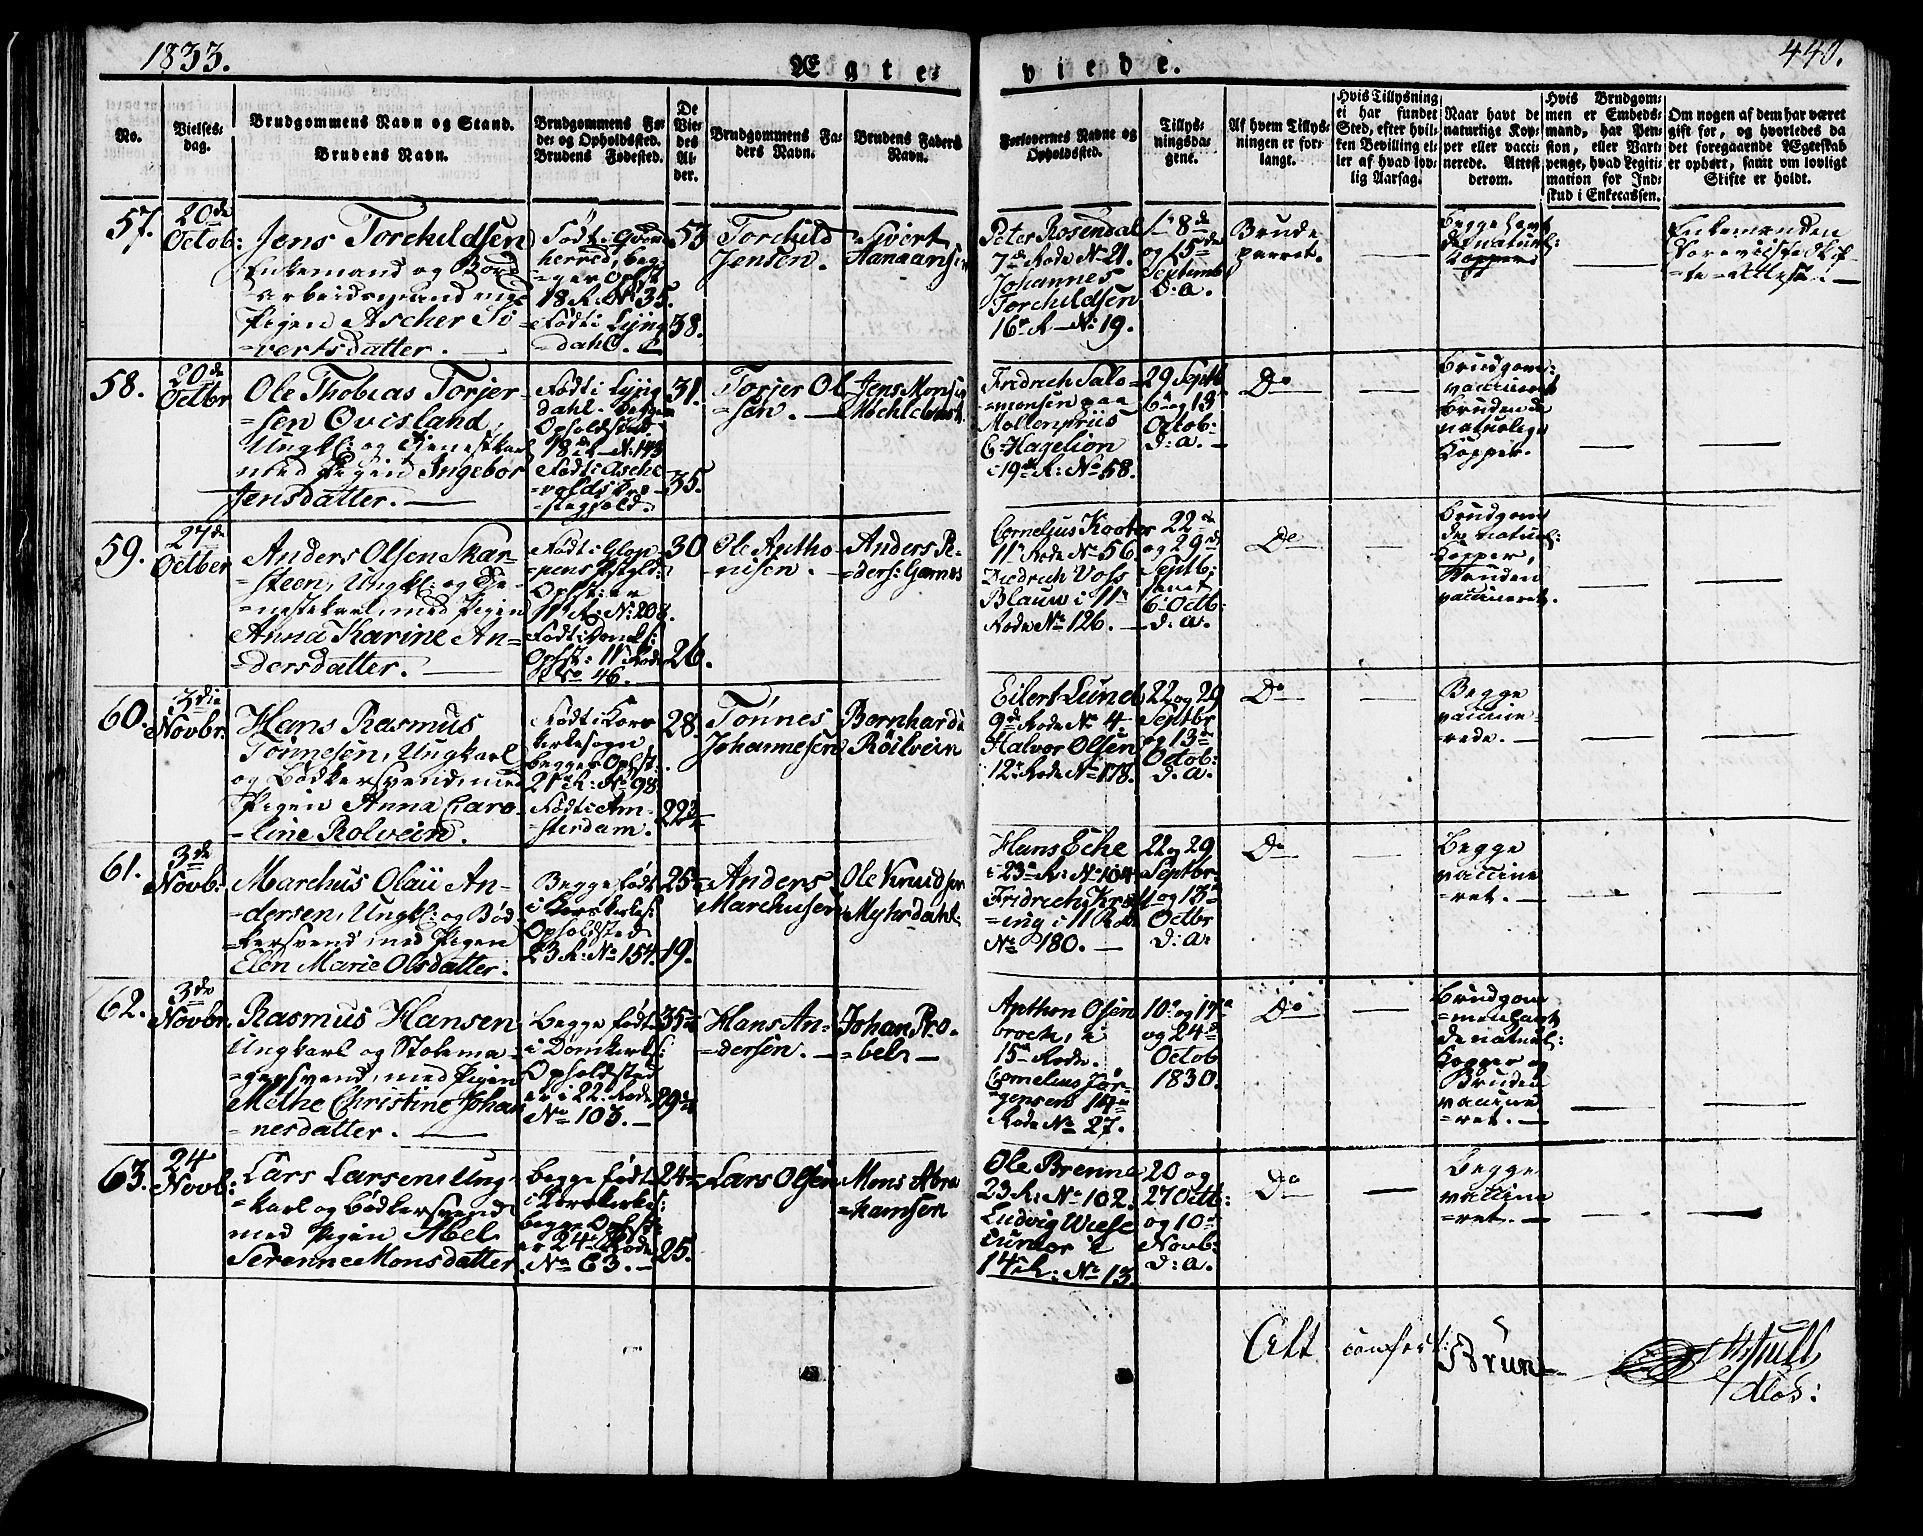 1833.
440.
Ægte-
viede.
No.
Vielses-
dag.
Brudgommens Navn og Stand.
Brudens Navn.
Brudgommens Fø-
de- og Opholdssted.
Brudens Fødested.
De
Vie-
des
Al-
der.
Brudgommens Fa-
ders Navn.
Brudens Faders
Navn.
Forlovernes Navne og
Opholdssted.
Tillys-
ningsda-
gene.
Af hvem Tillys-
ningen er for-
langt.
Hvis Tillysning
ei har fundet
Sted, efter hvil-
ken Bevilling el-
ler af hvad lov-
lig Aarsag.
Naar havt de
naturlige Kop-
per eller vacci-
nerede. Attest
derom.
Hvis Brudgom-
men er Embeds-
mand, har Pen-
sion, eller Vart-
penge, hvad Legiti-
mation for Ind-
skud i Enkecassen.
Om nogen af dem har været
gift før, og hvorledes da
det foregaaende Ægteskab
er ophørt, samt om lovligt
Skifte er holdt.
57.
20de
Octob:
Jens Torchildsen
Enkemand og Bord
arbeidsmand med
Pigen Ascher Si-
=vertsdatter.
Født i Qvind
herred, beg-
=ges Ophst
18 R: No 35.
Født i Lyng
=dahl.
53
38.
Torchild
Jensen.
Sivert
Hanaansen
Peter Rosendal
7de Rode No 21.
Johannes
Torchildsen
16 R - No 19.
1, 8de
og 15de
Septemb
d: a.
Brude
parret.
Begge havt
de naturl:
Kopper
Enkemanden
foreviiste Skif-
=te Attest.
58.
20de
Octbr
Ole Thobias Torjer-
=sen Qvisland,
Ungk: og Tienestkarl
med Pigen Ingebor
Jensdatter.
Født i Lyng
dahl. Begges
Opholdsted
18de R: No 143
Født i Asche
=volds Præ-
=stegield.
31.
35.
Torjer Ol
=sen.
Jens Monsen
Fridrich Salo-
=monsen paa
Møllenpriis
C: Hagelion
i 19de R: No 58.
29 Septb
6 og 13
Octob:
d: a.
Do
Brudgom:
vaccineret
Bruden de
naturlige
Kopper.
59.
27de
Octber
Anders Olsen Skar-
=steen, Ungk: og Tie-
=nestekarl, med Pigen
Anna Karine An-
=dersdatter.
Født i Glop-
=pens Pstgld:
Ophst: er
11 R: No: 208.
Født i Domk:
Ophst: 11 Rode
No 46.
30
26.
Ole Antho-
=nisen.
Anders Pe-
=ders: Garnes
Cornelius Kooter
11 Rode No 56.
Diedrich Voss
Blauw i 11
Rode No 126.
22de
og 29de
Septb:
samt
6 Octb:
d: a.
Do
Brudgom
de naturl:
Kopper,
Bruden
vaccineret.
60.
3die
Novbr.
Hans Rasmus
Tonnesen, Ungkarl
og Bødkersvend, med
Pigen Anna Caro-
=line Rolvein.
Født i Kors
kirkesogn,
begges Ophst
21 R: No 98.
Født i Am-
=sterdam.
28.
22½
Tonnes
Johannesen
Bernhard
Röilvein
Eilert Lund
9de Rode No 4.
Halvor Olsen
12 Rode No 178.
22 og 29
Septbr
og 13de
Octob:
d: a.
Do
Begge
vaccine-
=rede.
61.
3de
Novb:
Marchus Olaii An-
=dersen, Ungk: og Bød-
=kersvend med Pigen
Elen Marie Olsdatter.
Begge født
i Korskirkes:
Opholdsted
23 R: No 154.
25
19.
Anders
Marchusen
Ole Knudsen
Myhrdahl.
Hans Eche
i 23 R: No 104
Fridrich
i 11 R
No 180.
22 og 29
Septbr.
og 13
Octbr
d: a:
Do
Begge
vaccine
=ret.
62.
3de
Novbr.
Rasmus Hansen
Ungkarl og Stolema-
=gersvend, med Pigen
Methe Christine Johan
=nesdatter.
Begge født
i Domkirks:
Opholdsted
er i 22. Rode
No 103.
35
29
Hans An-
=dersen.
Johan Pro-
=bel
Anthon Osen
broch, i
15 Rode.
Cornelius Jør-
=gensen 14
Rode No 27.
10 og 17
og 24de
Octob
1830.
Do
Brudgom
=men havt
de naturl:
Kopper og
Bruden
vaccine
=ret.
63.
24
Novb:
Lars Larsen Ung-
=karl og Bødkersvend
med Pigen Abel
Serenne Monsdatter.
Begge født
i Korskirke:
begges Ophst:
er 24 Rode
No 63.
24
25.
Lars Olsen
Mons Abra
=hamsen
Ole Brenne
23 R: No 102.
Ludvig Wiese
Junior i
14 R: No 13
20 og
27 Octb:
og 10
Novb:
d: a.
Do
Begge
vaccine
=ret.
Alt
confert:
Brun